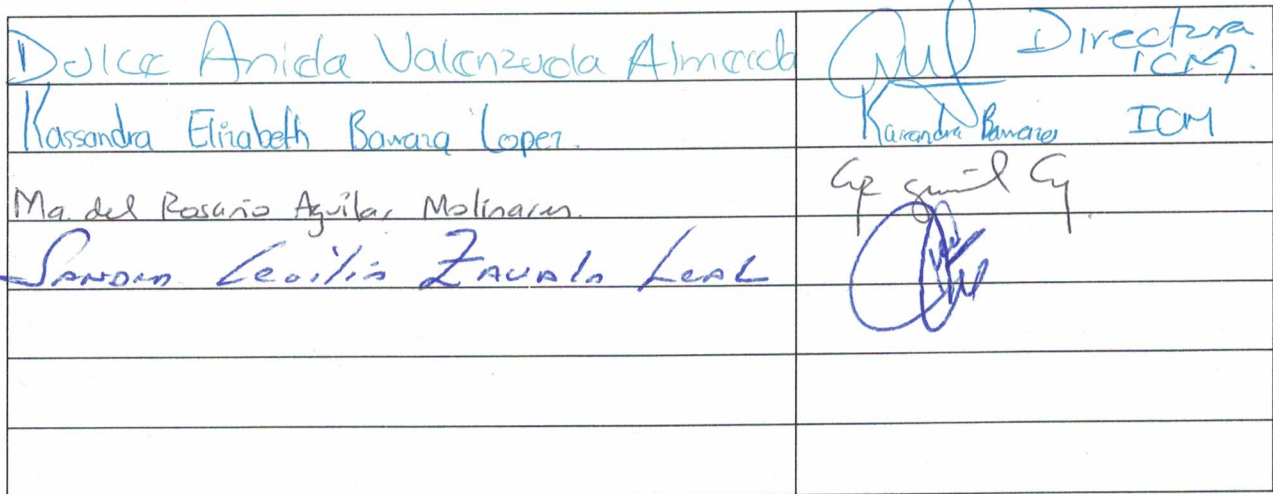 Dulce Anida Valenzuela Almeida Directora
ICM.
Kassandra Elizabeth Lopez. Kassandra ICM
Ma. del Rosario Aguilar Molinares.
Sandra Cecilia Zavala Leal